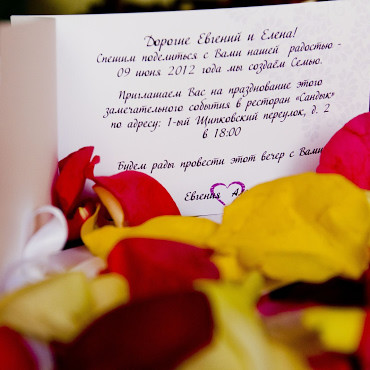 Дорогие Евгений и Елена!
Спешим поделиться с Вами нашей радостью -
09 июня 2012 года мы создаём Семью.
Приглашаем Вас на празднование этого
замечательного события в ресторан «Сандык»
по адресу: 1-ый Щипковский переулок, д. 2
в 18:00
Будем рады провести этот вечер с Вами
Евгения